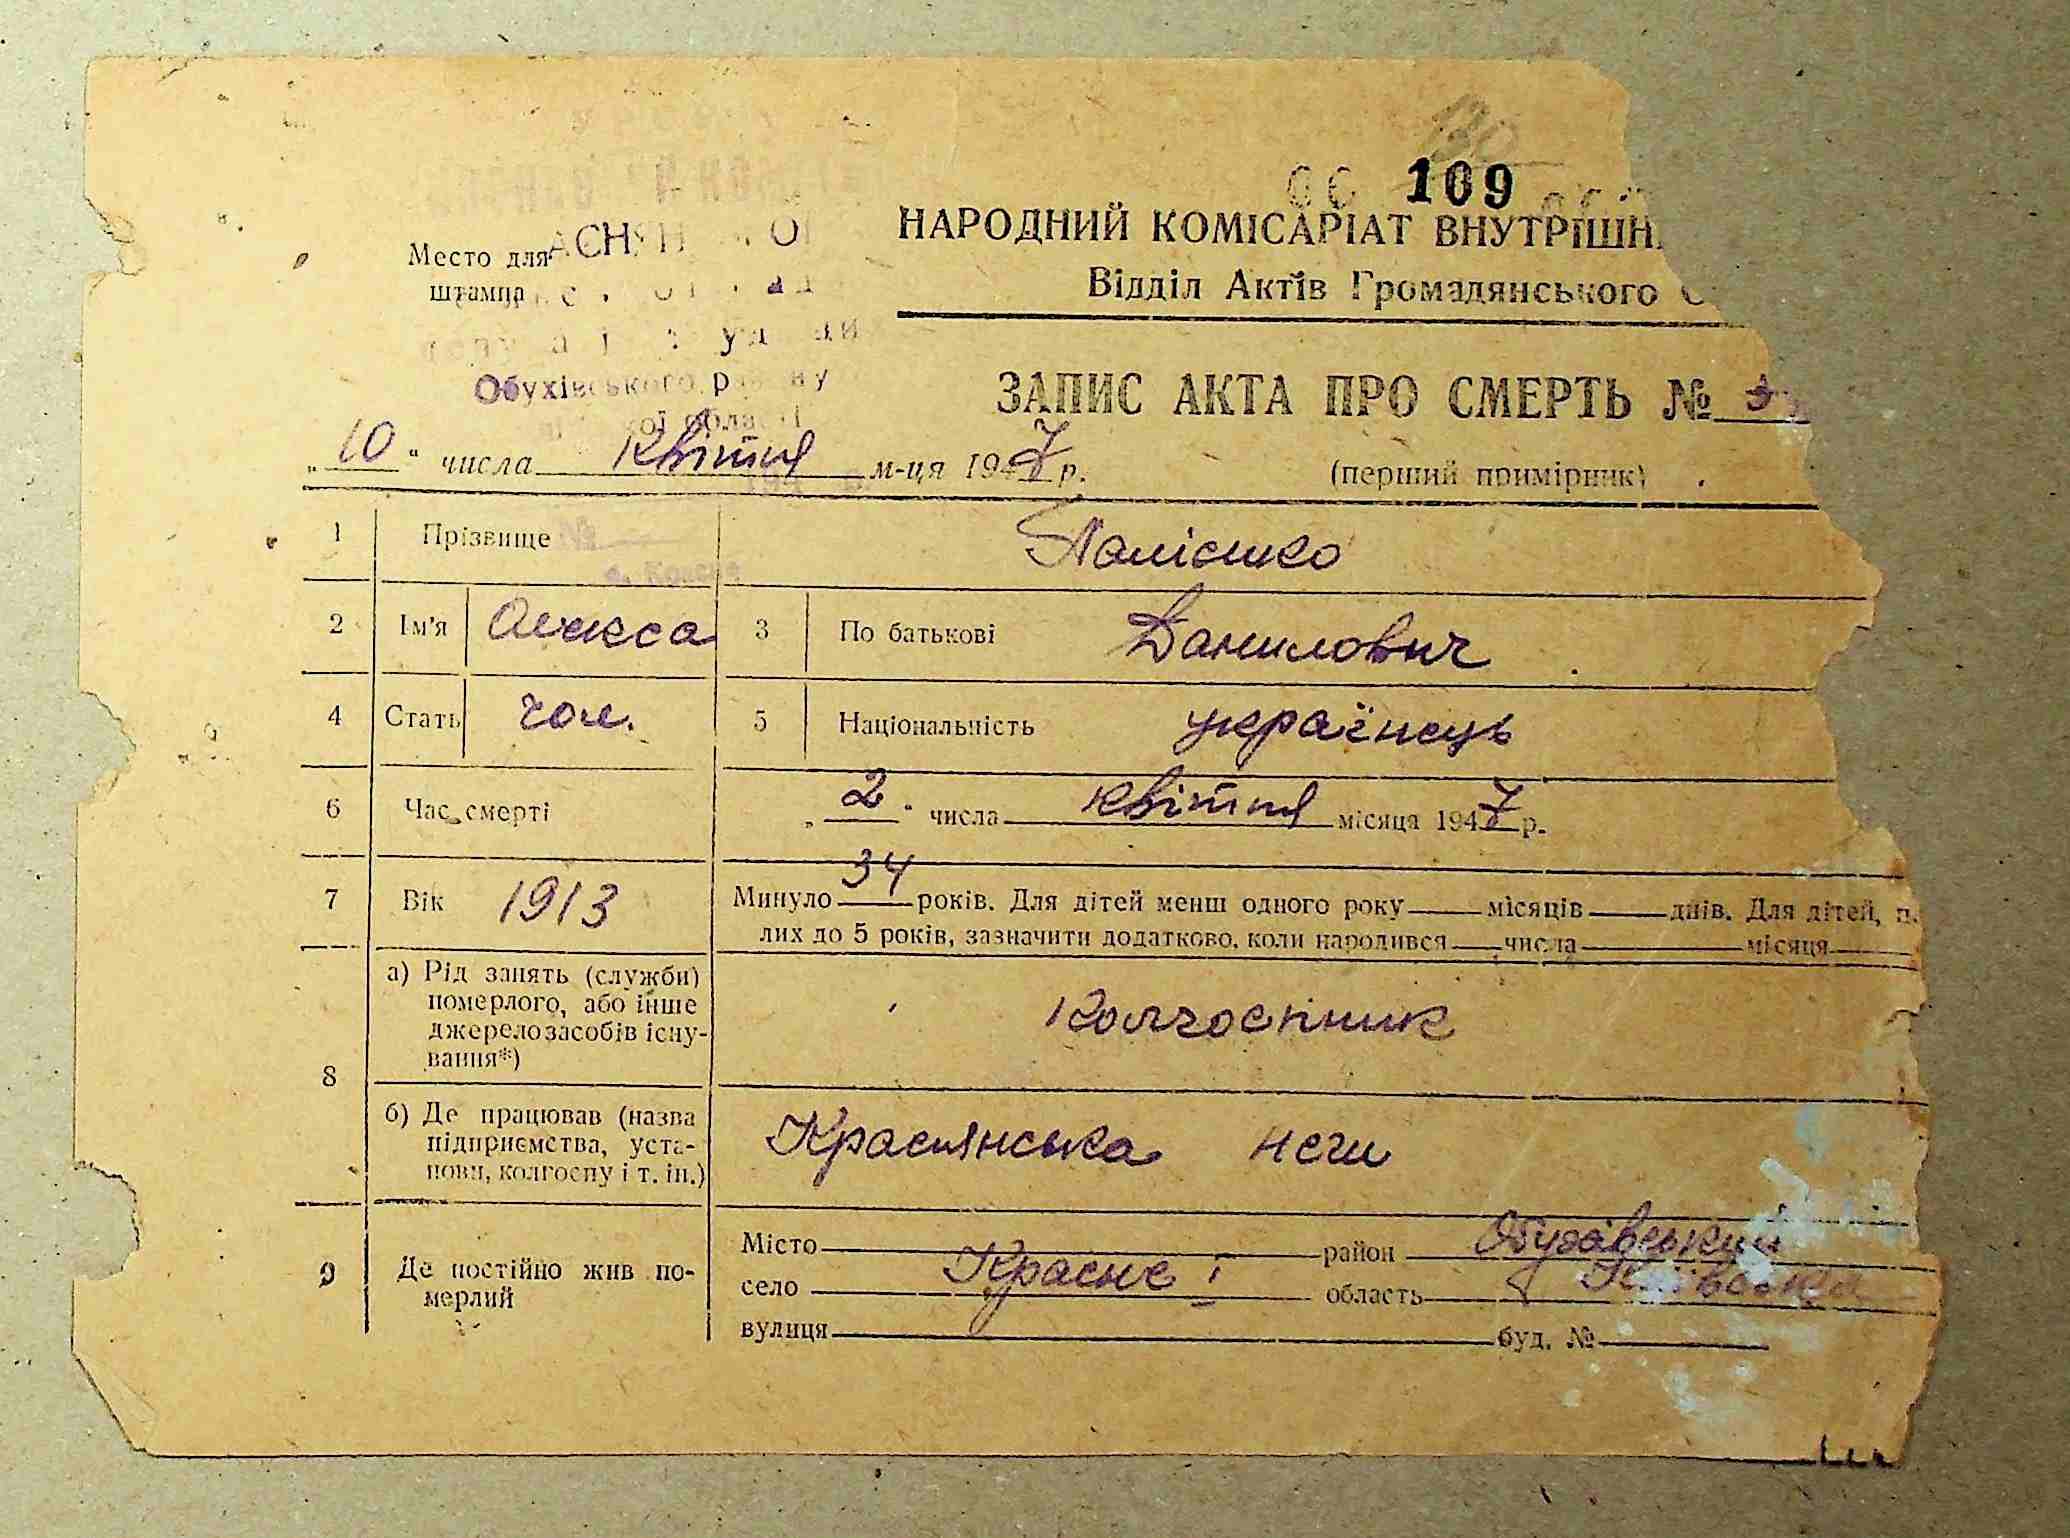 109
НАРОДНИЙ КОМІСАРІАТ ВНУТРІШН
Відділ Актів Громадянського С
Место для
штампа
Обухівського району
ЗАПИС АКТА ПРО СМЕРТЬ №
„10“ числа квітня м-ця 1947 р.
(перший примірник)
1 Прізвище
2 Ім'я Олекса 3 По батькові Данилович
4 Стать чол. 5 Національність українець
6 Час смерті „2“ числа квітня місяця 1947 р.
7 Вік 1913 Минуло 34 років. Для дітей менш одного року місяців днів. Для дітей, п
лих до 5 років, зазначити додатково, коли народився числа місяця
8 а) Рід занять (служби)
померлого, або інше
джерело засобів існу-
вання*)
Колгоспник
б) Де працював (назва
підприємства, уста-
нови, колгоспу і т. ін.)
Краснянська
9 Де постійно жив по-
мерлий
Місто район Обухівський
село Красне І область Київська
вулиця буд. №